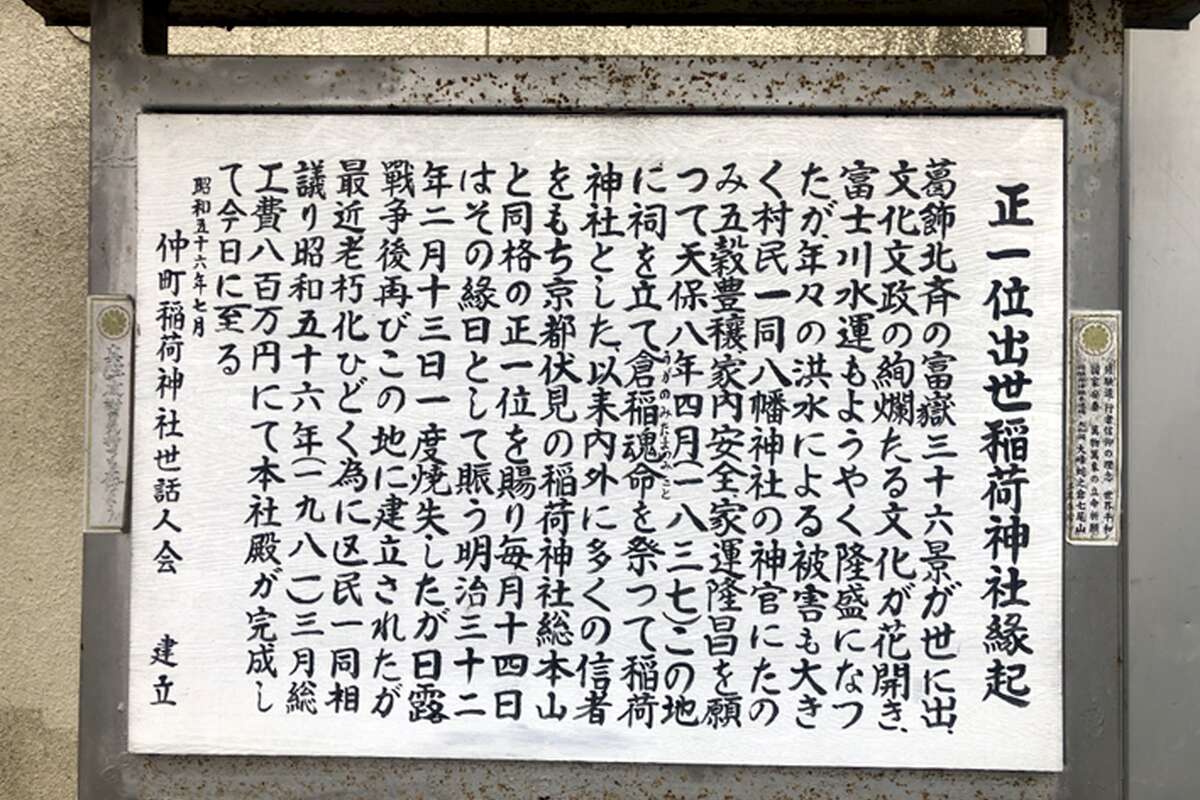 正一位出世稲荷神社縁起
葛飾北斉の富嶽三十六景が世に出、
文化文政の絢爛たる文化が花開き、
富士川水運もようやく隆盛になつ
たが、年々の洪水による被害も大き
く村民一同八幡神社の神官にたの
み五穀豊穣家内安全、家運隆昌を願
つて天保八年四月(一八三七)この地
に祠を立て倉稲魂命を祭つて稲荷
うがのみたまのみこと
神社とした、以来内外に多くの信者
をもち京都伏見の稲荷神社総本山
と同格の正一位を賜り毎月十四日
はその縁日として賑う明治三十二
年二月十三日一度焼失したが日露
戰争後再びこの地に建立されたが
最近老朽化ひどく為に区民一同相
議り昭和五十六年(一九八一)三月総
工費八百万円にて本社殿が完成し
て今日に至る
昭和五十六年七月
仲町稲荷神社世話人会 建立
世界平和
国家安泰 萬物萬象の立命祈願